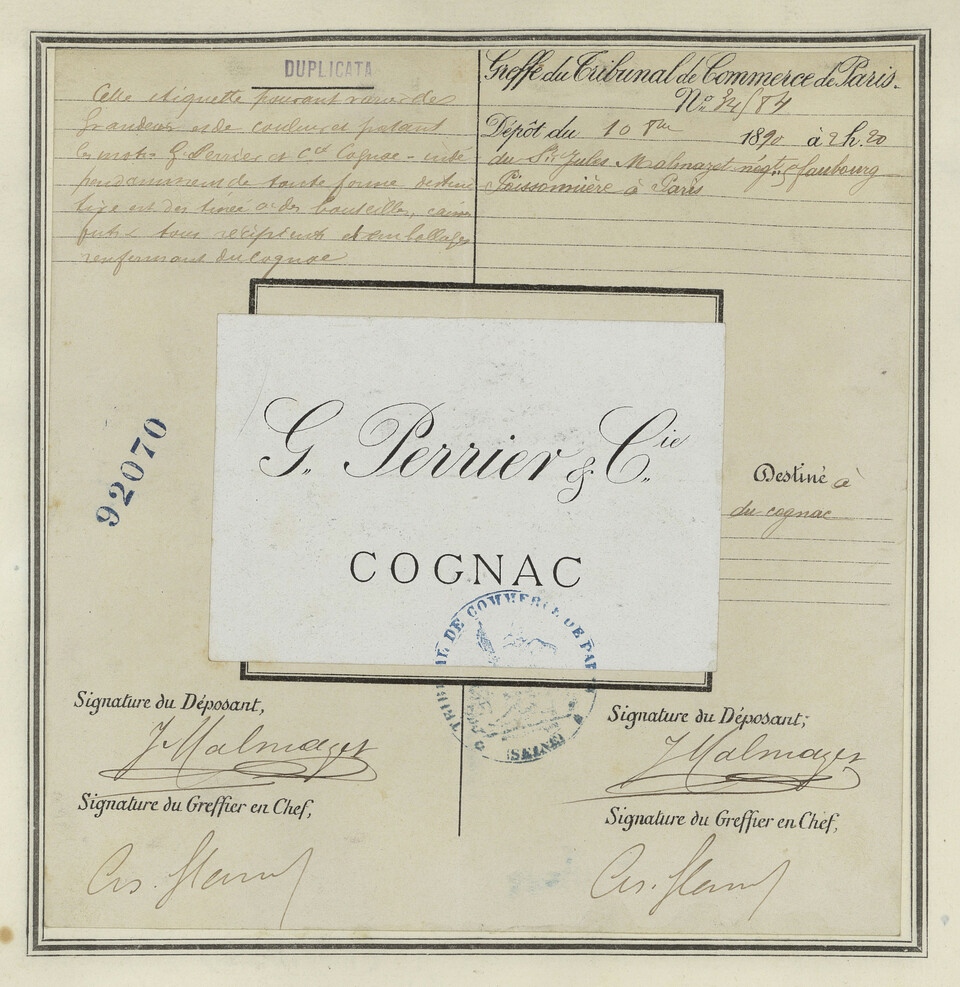 DUPLICATA
Cette étiquette pouvant varier de
grandeur et de couleur et portant
les mots G. Perrier et Cie Cognac
de toute forme
est destinée à des bouteilles,
tous récipients et emballages
renfermant du cognac
Greffe du Tribunal de Commerce de Paris.
No
Dépôt du 10 1890 à 2 h. 20
du Sr Jules Malmazet négt faubourg
Poissonnière à Paris
92070
G. Perrier & Cie
COGNAC
Destiné à
du cognac
TRIBUNAL DE COMMERCE DE PARIS
(SEINE)
Signature du Déposant,
J Malmazet
Signature du Greffier en Chef,
Signature du Déposant;
J Malmazet
Signature du Greffier en Chef,